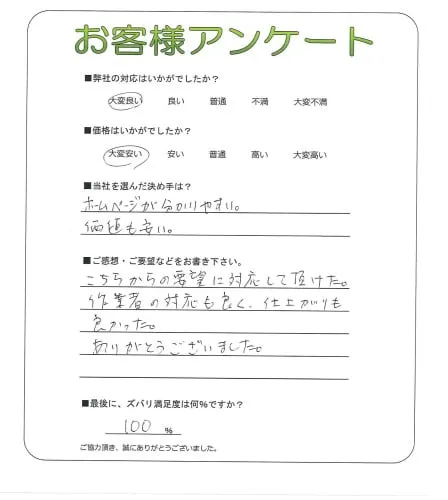 お客様アンケート
■弊社の対応はいかがでしたか?
大変良い 良い 普通 不満 大変不満
■価格はいかがでしたか?
大変安い 安い 普通 高い 大変高い
■当社を選んだ決め手は?
ホームページが分かりやすい。
価値も安い。
■ご感想・ご要望などをお書き下さい。
こちらからの要望に対応して頂けた。
作業者の対応も良く、仕上がりも
良かった。
ありがとうございました。
■最後に、ズバリ満足度は何%ですか?
100 %
ご協力頂き、誠にありがとうございました。